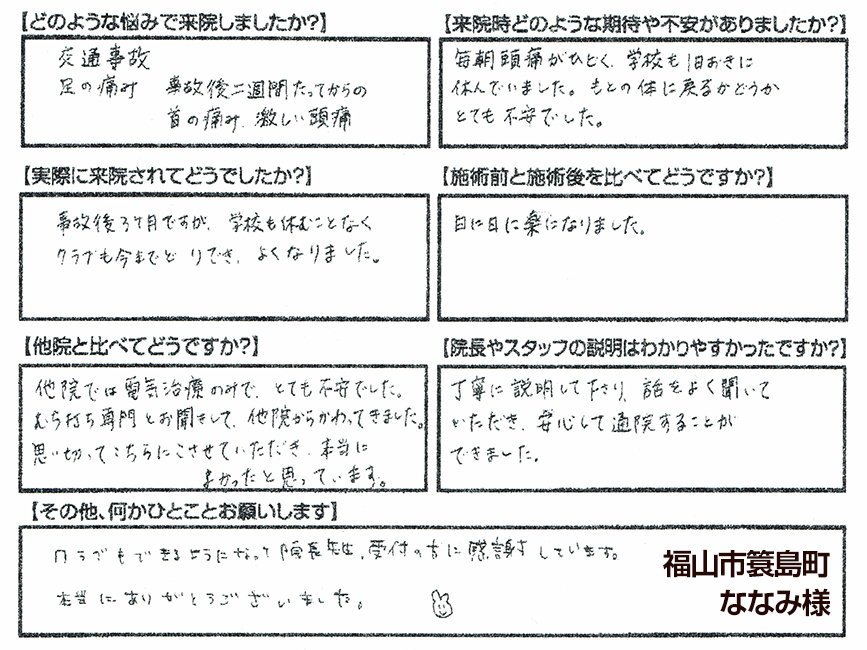 【どのような悩みで来院しましたか?】
交通事故
足の痛み 事故後二週間たってからの
首の痛み、激しい頭痛
【来院時どのような期待や不安がありましたか?】
毎朝頭痛がひどく、学校も1日おきに
休んでいました。もとの体に戻るかどうか
とても不安でした。
【実際に来院されてどうでしたか?】
事故後3ヶ月ですが、学校も休むことなく
クラブも今までど りでき、よくなりました。
【施術前と施術後を比べてどうですか?】
日に日に楽になりました。
【他院と比べてどうですか?】
他院では電気治療のみで、とても不安でした。
むち打ち専門とお聞きして、他院からかわってきました。
思い切ってこちらにこさせていただき、本当に
よかったと思っています。
【院長やスタッフの説明はわかりやすかったですか?】
丁寧に説明して下さり、話をよく聞いて
いただき、安心して通院することが
できました。
【その他、何かひとことお願いします】
クラブもできるようになって院長先生、受付の方に感謝しています。
本当にありがとうございました。
福山市箕島町
ななみ様